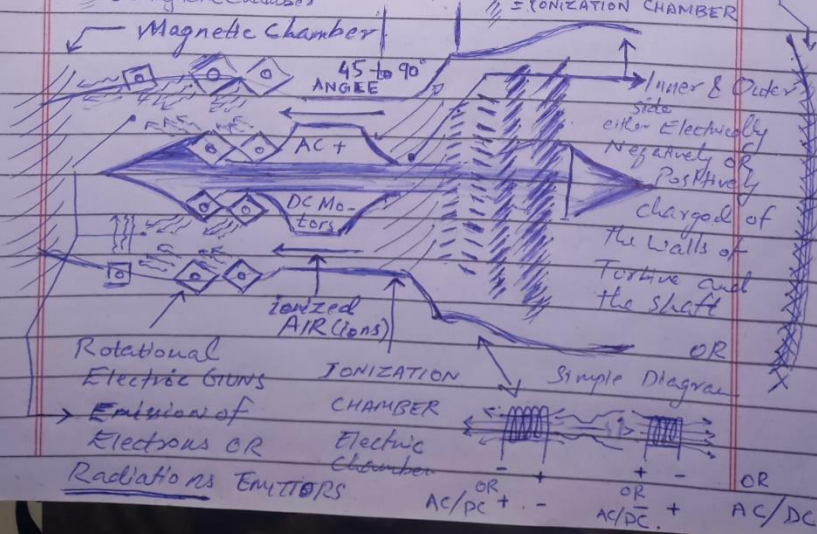 = IONIZATION CHAMBER
Magnetic Chamber
45 to 90°
ANGEE
AC +
DC Mo-
tors
Inner & Outer
side
either Electrically
Negatively OR
Positively
charged of
the walls of
Turbine and
the shaft
OR
ionized
AIR (ions)
Rotational
Electric GUNS
Emission of
Electrons OR
Radiations EMITTORS
IONIZATION
CHAMBER
Electric
Chamber
Simple Diagram
- +
OR
AC/DC + -
+ -
OR
AC/DC. - +
OR
AC/DC